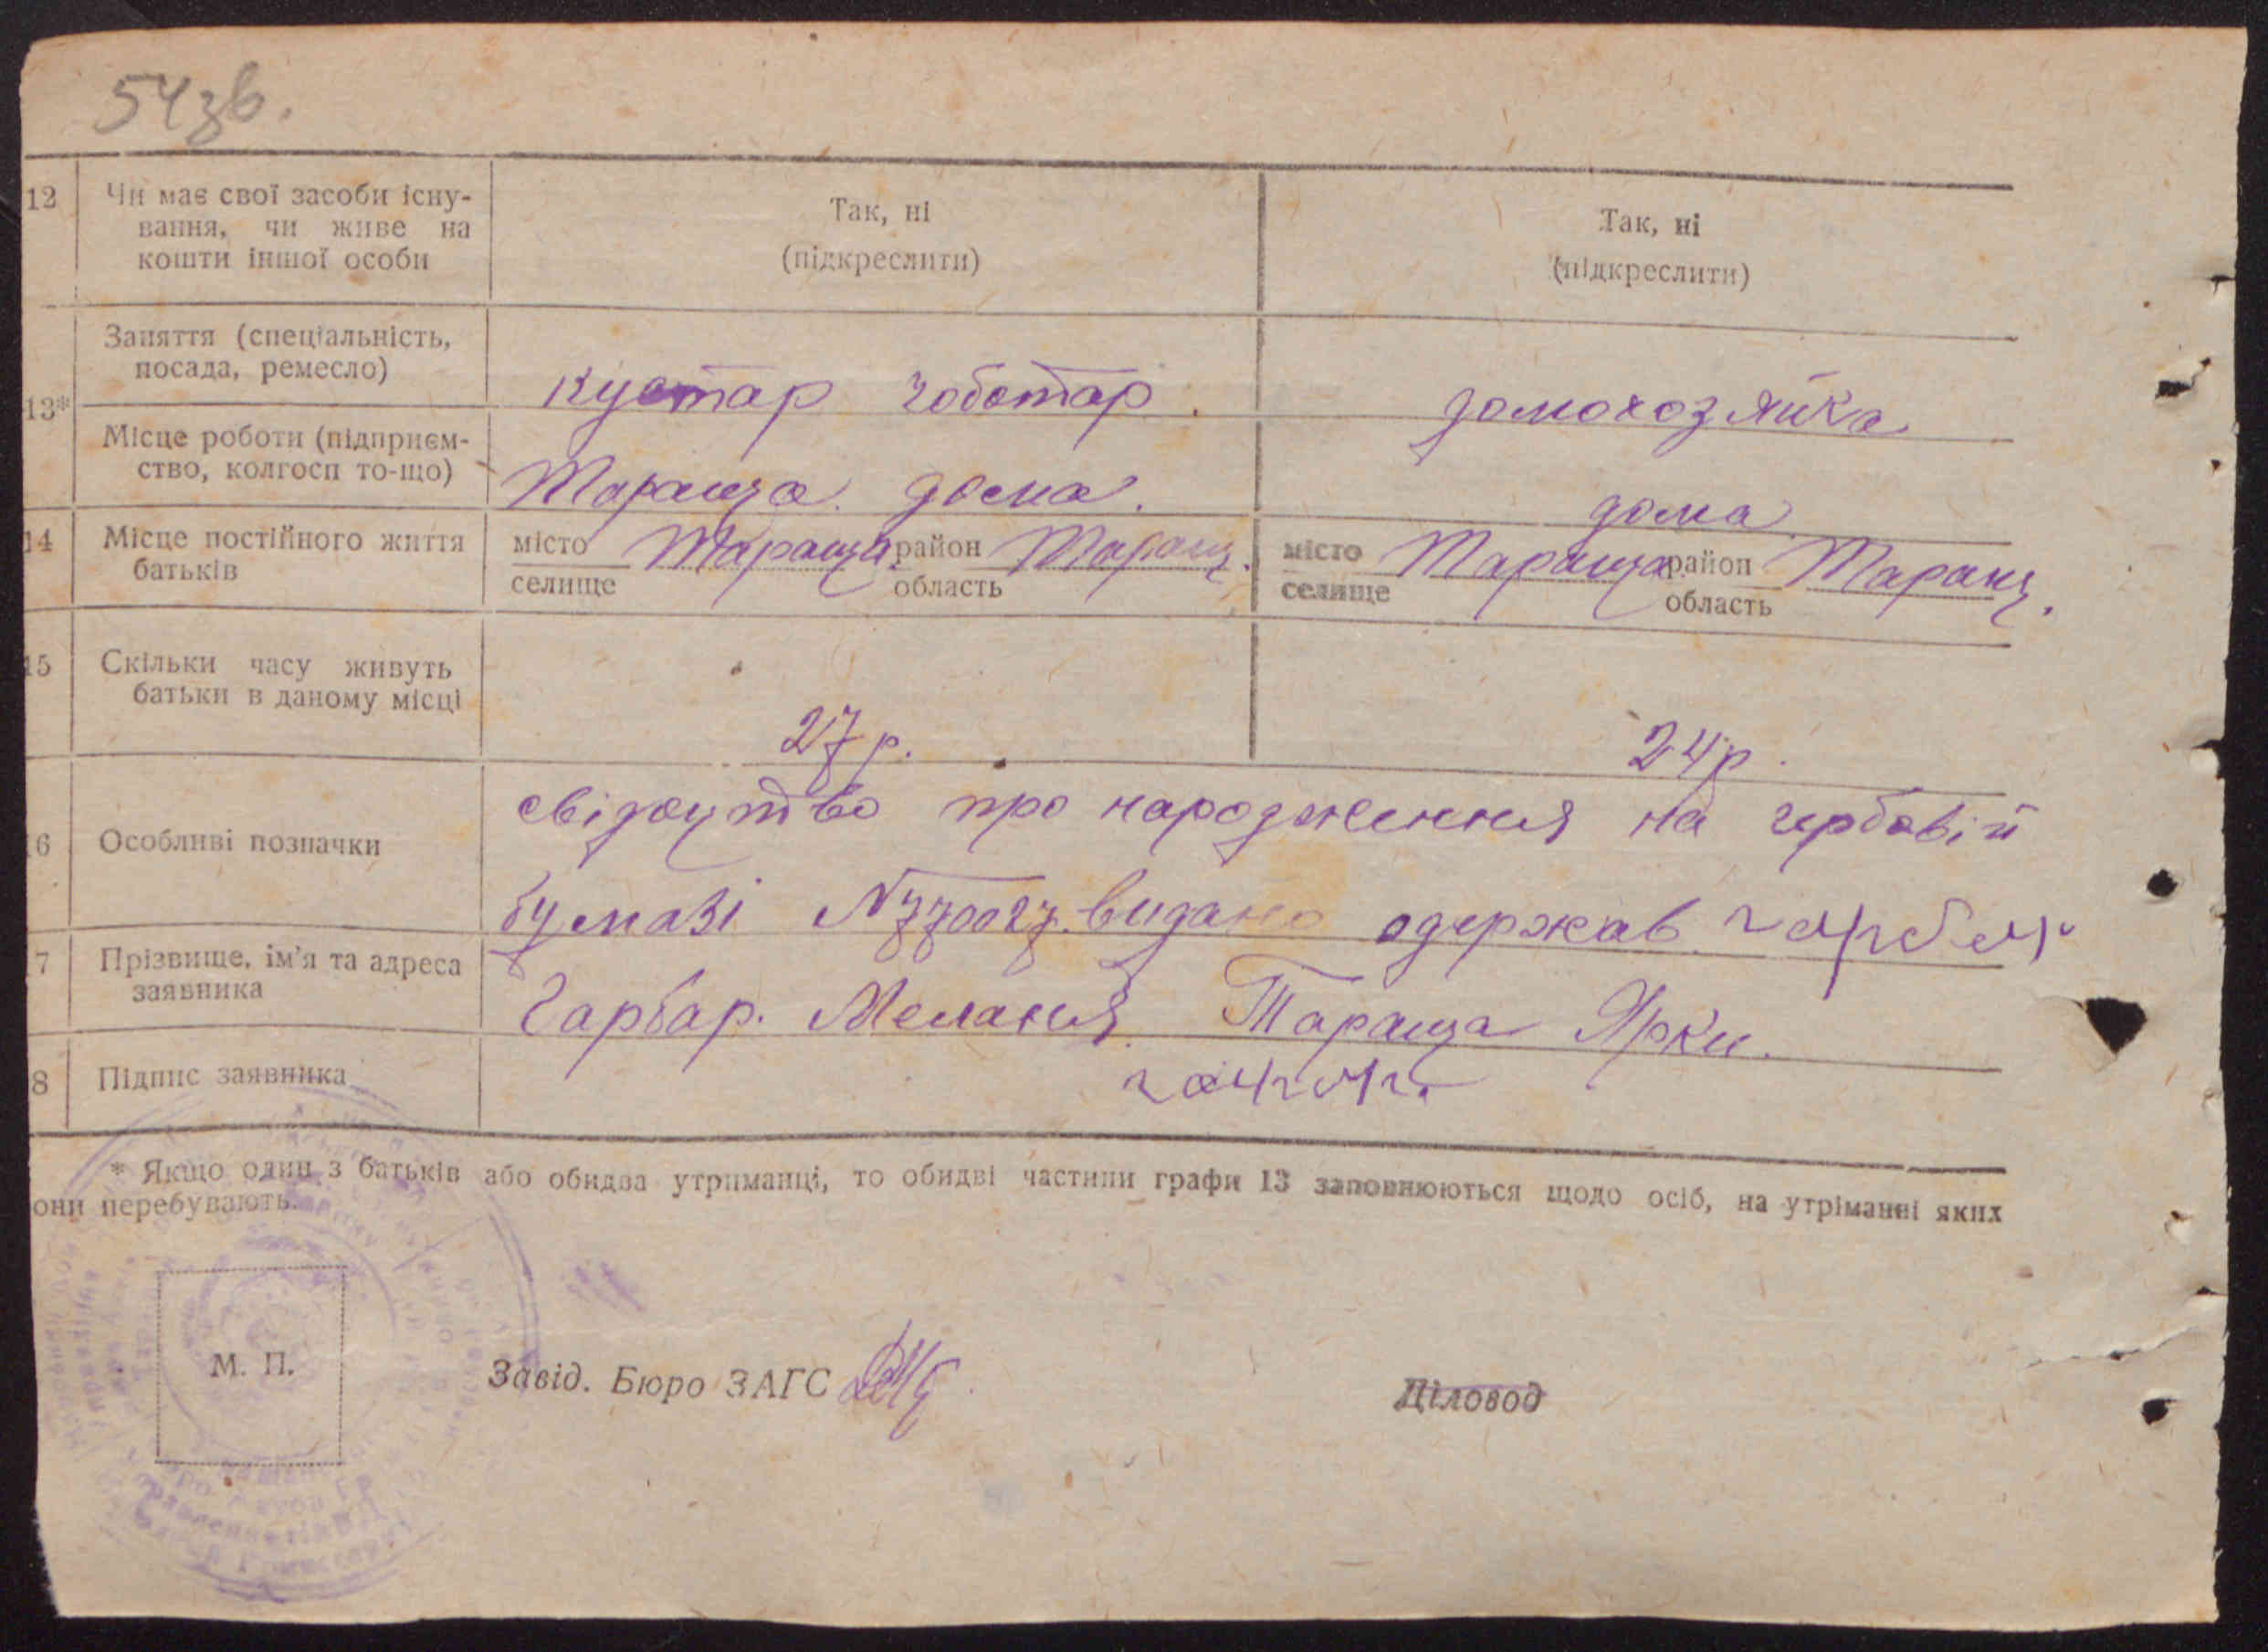 54зв.
12 Чи має свої засоби існу-
вання, чи живе на
кошти іншої особи
Так, ні
(підкреслити)
Так, ні
(підкреслити)
13*
Заняття (спеціальність,
посада, ремесло)
кустар чоботар.
домохозяйка.
Місце роботи (підприєм-
ство, колгосп то-що)
Тараща. дома.
дома
14 Місце постійного життя
батьків
місто Тараща район Таращ.
селище область
місто Тараща район Таращ.
селище область
15 Скільки часу живуть
батьки в даному місці
27 р.
24 р.
6 Особливі позначки
свідоцтво про народження на гербовій
бумазі N770027. видано одержав
7 Прізвище, ім'я та адреса
заявника
Гарбар. Мелания. Тараща Ярки.
8 Підпис заявника
* Якщо один з батьків або обидва утриманці, то обидві частини графи 13 заповнюються щодо осіб, на утріманні яких
они перебувають.
М. П.
Завід. Бюро ЗАГС
Діловод